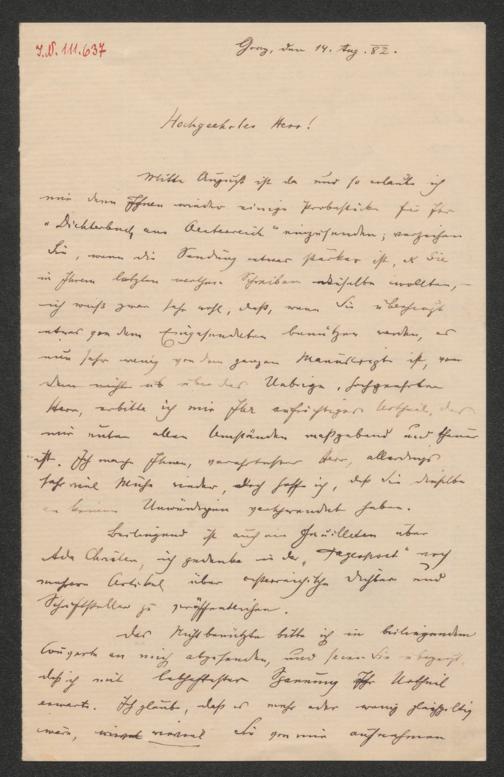 J.N. 111.637
Graz, den 14. Aug. 82.
Hochgeehrter Herr!
Mitte August ist da und so erlaube ich
mir denn Ihnen wieder einige Probestücke für Ihr
"Dichterbuch aus Oesterreich" einzusenden; verzeihen
Sie, wenn die Sendung etwas stärker ist, als Sie
in Ihrem letzten werthen Schreiben dieselbe wollten,
ich weiß zwar sehr wohl, daß, wenn Sie überhaupt
etwas von dem Eingesendeten benützen werden, es
nur sehr wenig von dem ganzen Manuscripte ist, von
dem nicht über das Uebrige, hochgeehrter
Herr, erbitte ich mir Ihr aufrichtiges Urtheil, das
mir unter allen Umständen maßgebend und theuer
ist. Ich mache Ihnen, verehrtester Herr, allerdings
sehr viel Mühe wieder, doch hoffe ich, daß Sie dieselbe
an keinen Unwürdigen verschwendet haben.
Beiliegend ist auch ein Feuilleton über
Ada Christen, ich gedenke in der "Tagespost" noch
mehrere Artikel über österreichische Dichter und
Schriftsteller zu veröffentlichen.
Das Nichtbenützte bitte ich in beiliegendem
Couverte an mich abzusenden, und seien Sie überzeugt,
daß ich mit lebhaftester Spannung Ihr Urtheil
erwarte. Ich glaube, daß es mehr oder wenig gleichgiltig
wäre, wieviel Sie von mir aufnehmen